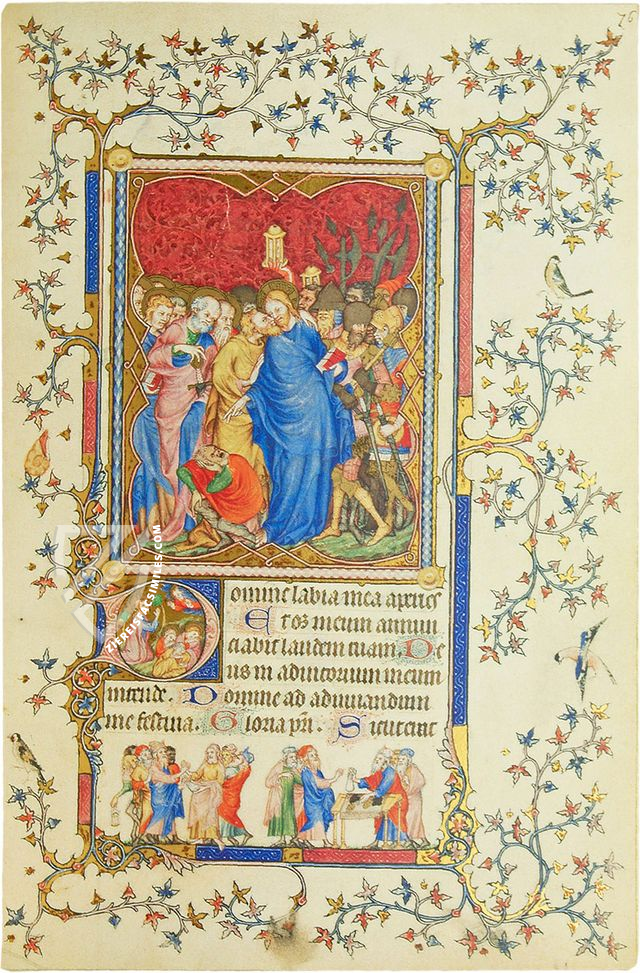 76
Domine labia mea aperies
Et os meum annun
ciabit laudem tuam De
us in adiutorium meum
intende Domine ad adiuuandum
me festina Gloria pri Sicut erat
FACSIMILES.COM